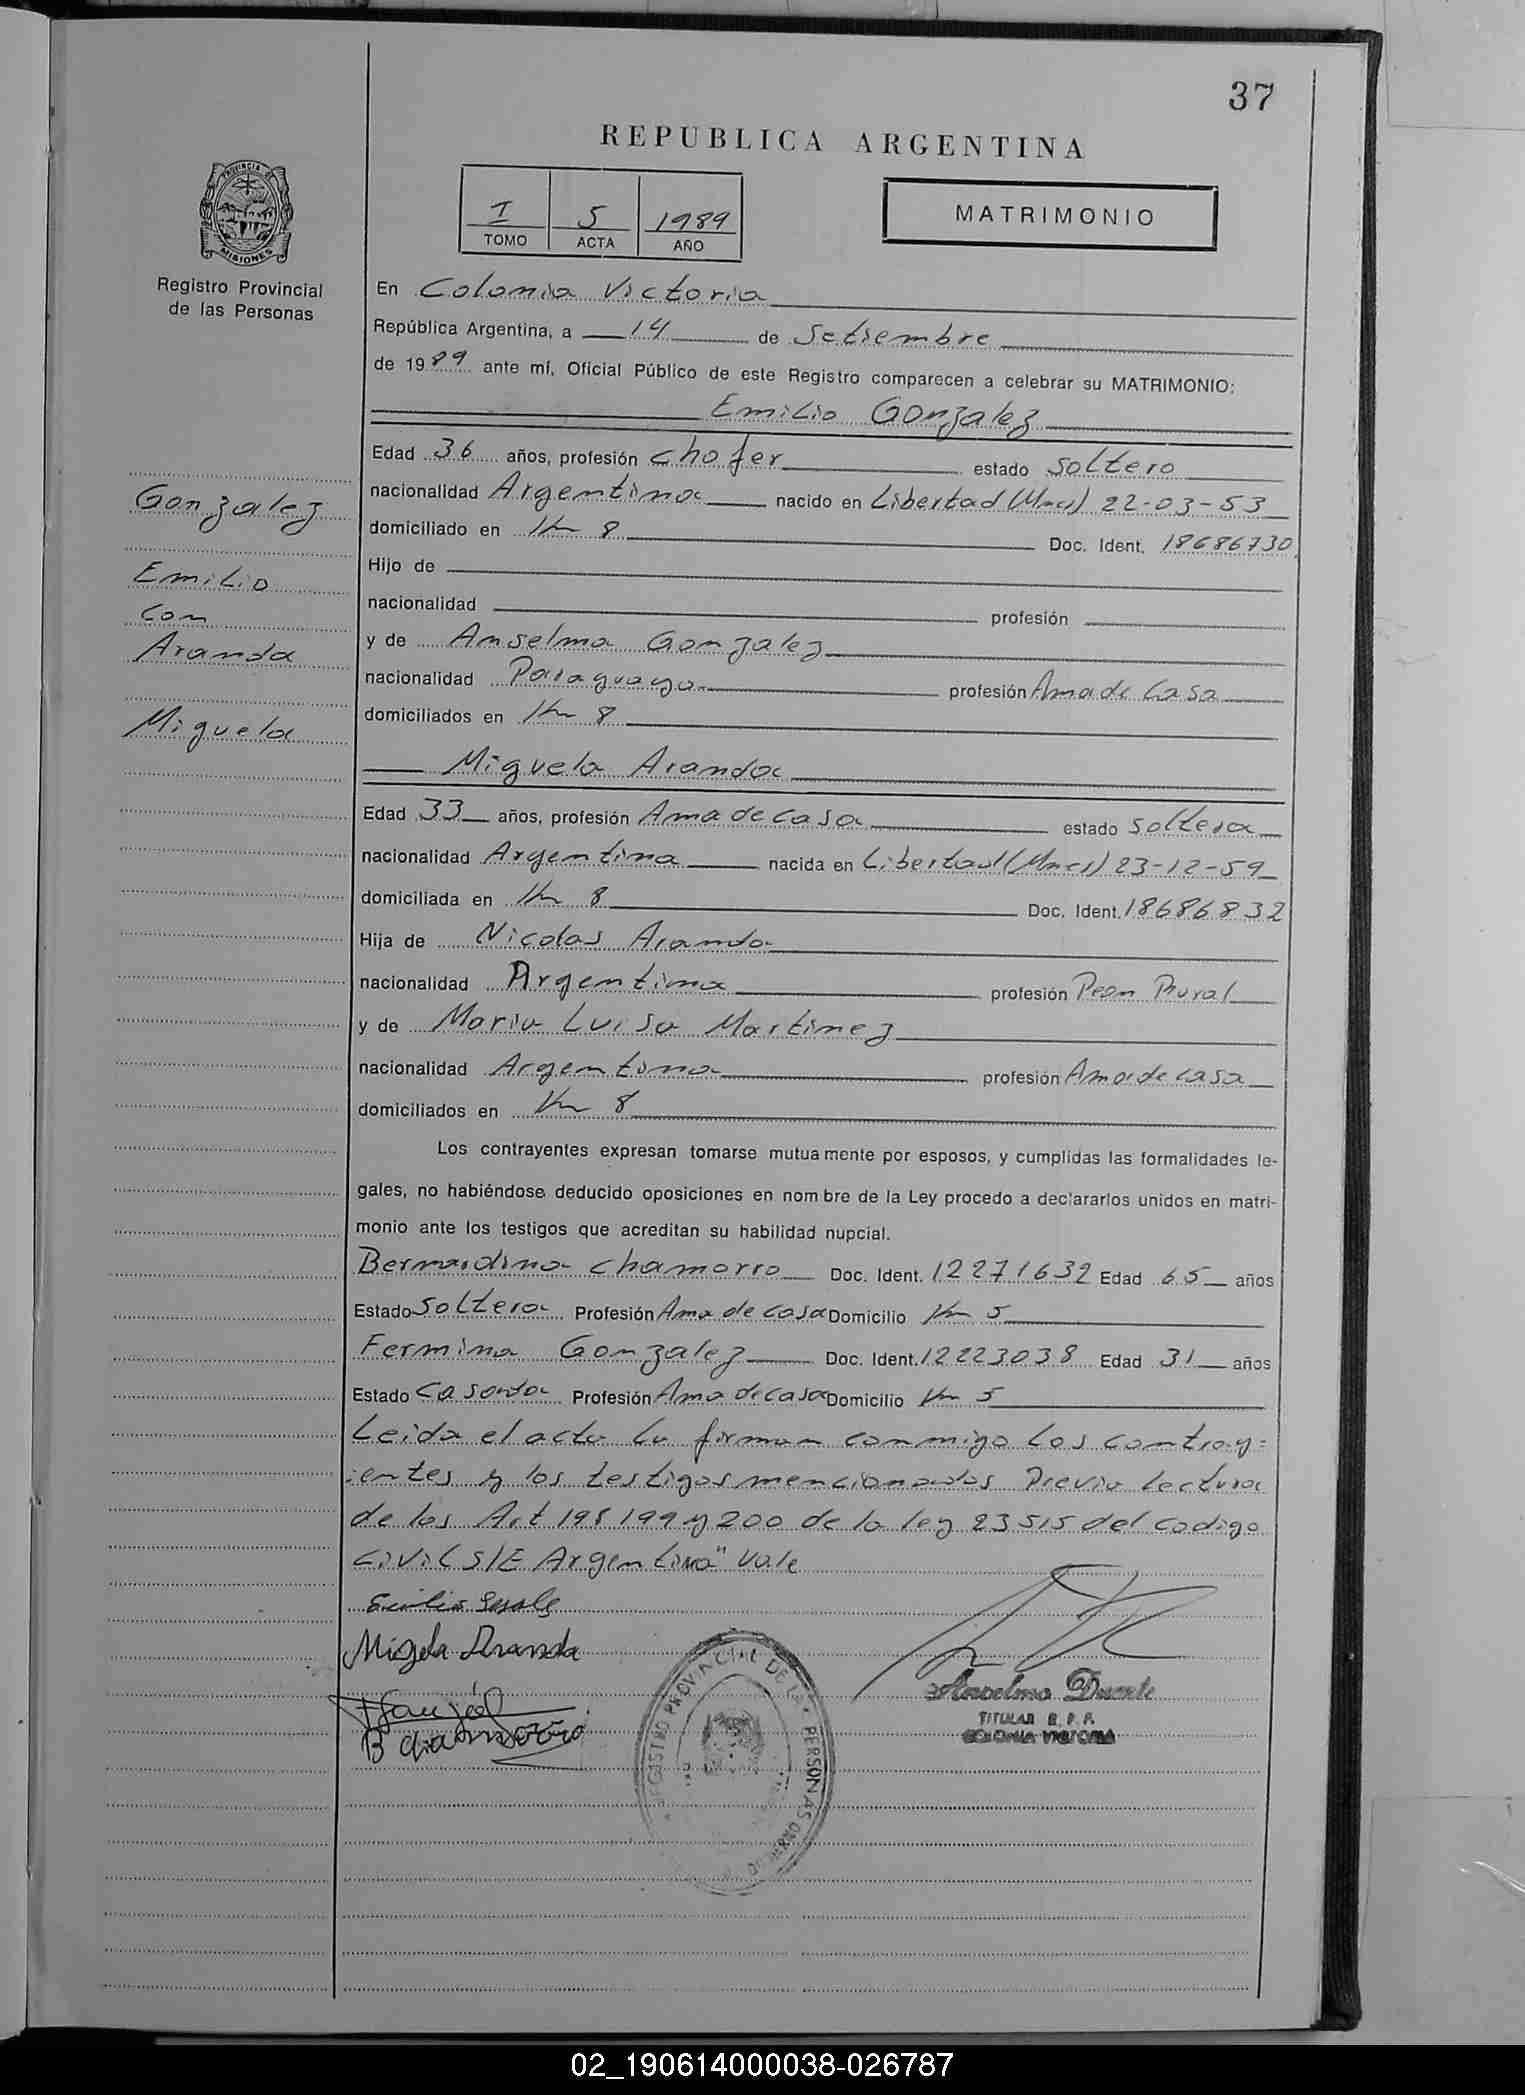 37
REPUBLICA ARGENTINA
PROVINCIA D
MISIONES
Registro Provincial
de las Personas
I 5 1989
TOMO ACTA AÑO
MATRIMONIO
En Colonia Victoria
República Argentina, a 14 de Setiembre
de 1989 ante mí, Oficial Público de este Registro comparecen a celebrar su MATRIMONIO:
Emilio Gonzalez
Edad 36 años, profesión chofer estado soltero
nacionalidad Argentina nacido en Libertad (Mnes) 22-03-53
domiciliado en Km 8 Doc. Ident. 18686730
Hijo de
nacionalidad profesión
y de Anselma Gonzalez
nacionalidad Paraguaya profesión Ama de Casa
domiciliados en Km 8
Gonzalez
Emilio
con
Aranda
Miguela
Miguela Aranda
Edad 33 años, profesión Ama de casa estado soltera
nacionalidad Argentina nacida en Libertad (Mnes) 23-12-59
domiciliada en Km 8 Doc. Ident. 18686832
Hija de Nicolas Aranda
nacionalidad Argentina profesión Peon Rural
y de Maria Luisa Martinez
nacionalidad Argentina profesión Ama de casa
domiciliados en Km 8
Los contrayentes expresan tomarse mutuamente por esposos, y cumplidas las formalidades le-
gales, no habiéndose deducido oposiciones en nombre de la Ley procedo a declararlos unidos en matri-
monio ante los testigos que acreditan su habilidad nupcial.
Bernardina Chamorro Doc. Ident. 12271632 Edad 65 años
Estado Soltera Profesión Ama de casa Domicilio Km 5
Fermina Gonzalez Doc. Ident. 12223038 Edad 31 años
Estado Casada Profesión Ama de casa Domicilio Km 5
Leida el acta la firman conmigo los contray=
ientes y los testigos mencionados Previa lectura
de los Art 198 199 y 200 de la ley 23515 del codigo
civil S/E Argentina" Vale
Migela Aranda
B chamorro
REGISTRO PROVINCIAL DE LAS PERSONAS
Anselmo Duarte
TITULAR R. P. P.
COLONIA VICTORIA
02_190614000038-026787